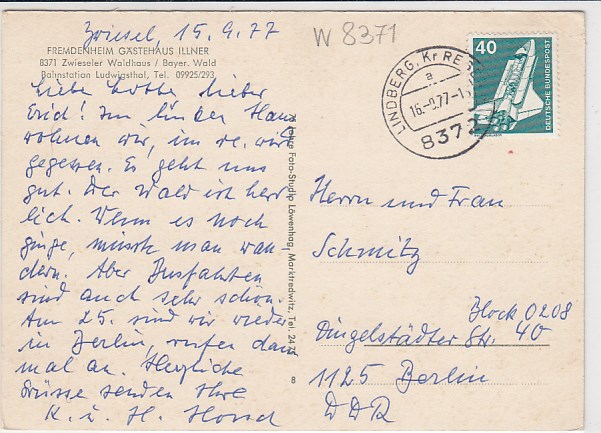 Zwiesel, 15.9.77
W 8371
FREMDENHEIM GÄSTEHAUS ILLNER
8371 Zwieseler Waldhaus / Bayer. Wald
Bahnstation Ludwigsthal, Tel. 09925/293
Liebe Lotte, lieber
Erich! Im linken Haus
wohnen wir, im re. wird
gegessen. Es geht uns
gut. Der Wald ist herr
lich. Wenn es noch
ginge, müsste man wan-
dern. Aber Busfahrten
sind auch sehr schön.
Am 25. sind wir wieder
in Berlin, rufen dann
mal an. Herzliche
Grüsse senden Ihre
K. u. H.
Foto-Studio Löwenhag, Marktredwitz, Tel.
8
LINDBERG, Kr RE
a
16.-9.77-1
8372
40
DEUTSCHE BUNDESPOST
Herrn und Frau
Schmitz
Block 0208
Dingelstädter Str. 40
1125 Berlin
DDR